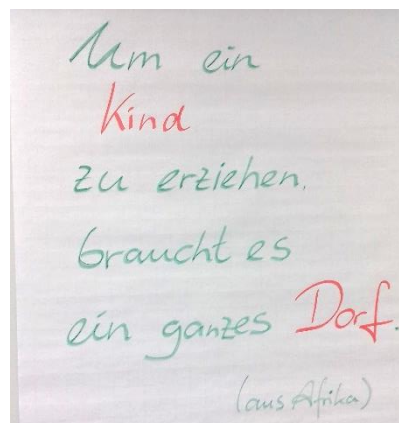 Um ein
Kind
zu erziehen,
braucht es
ein ganzes Dorf.
(aus Afrika)